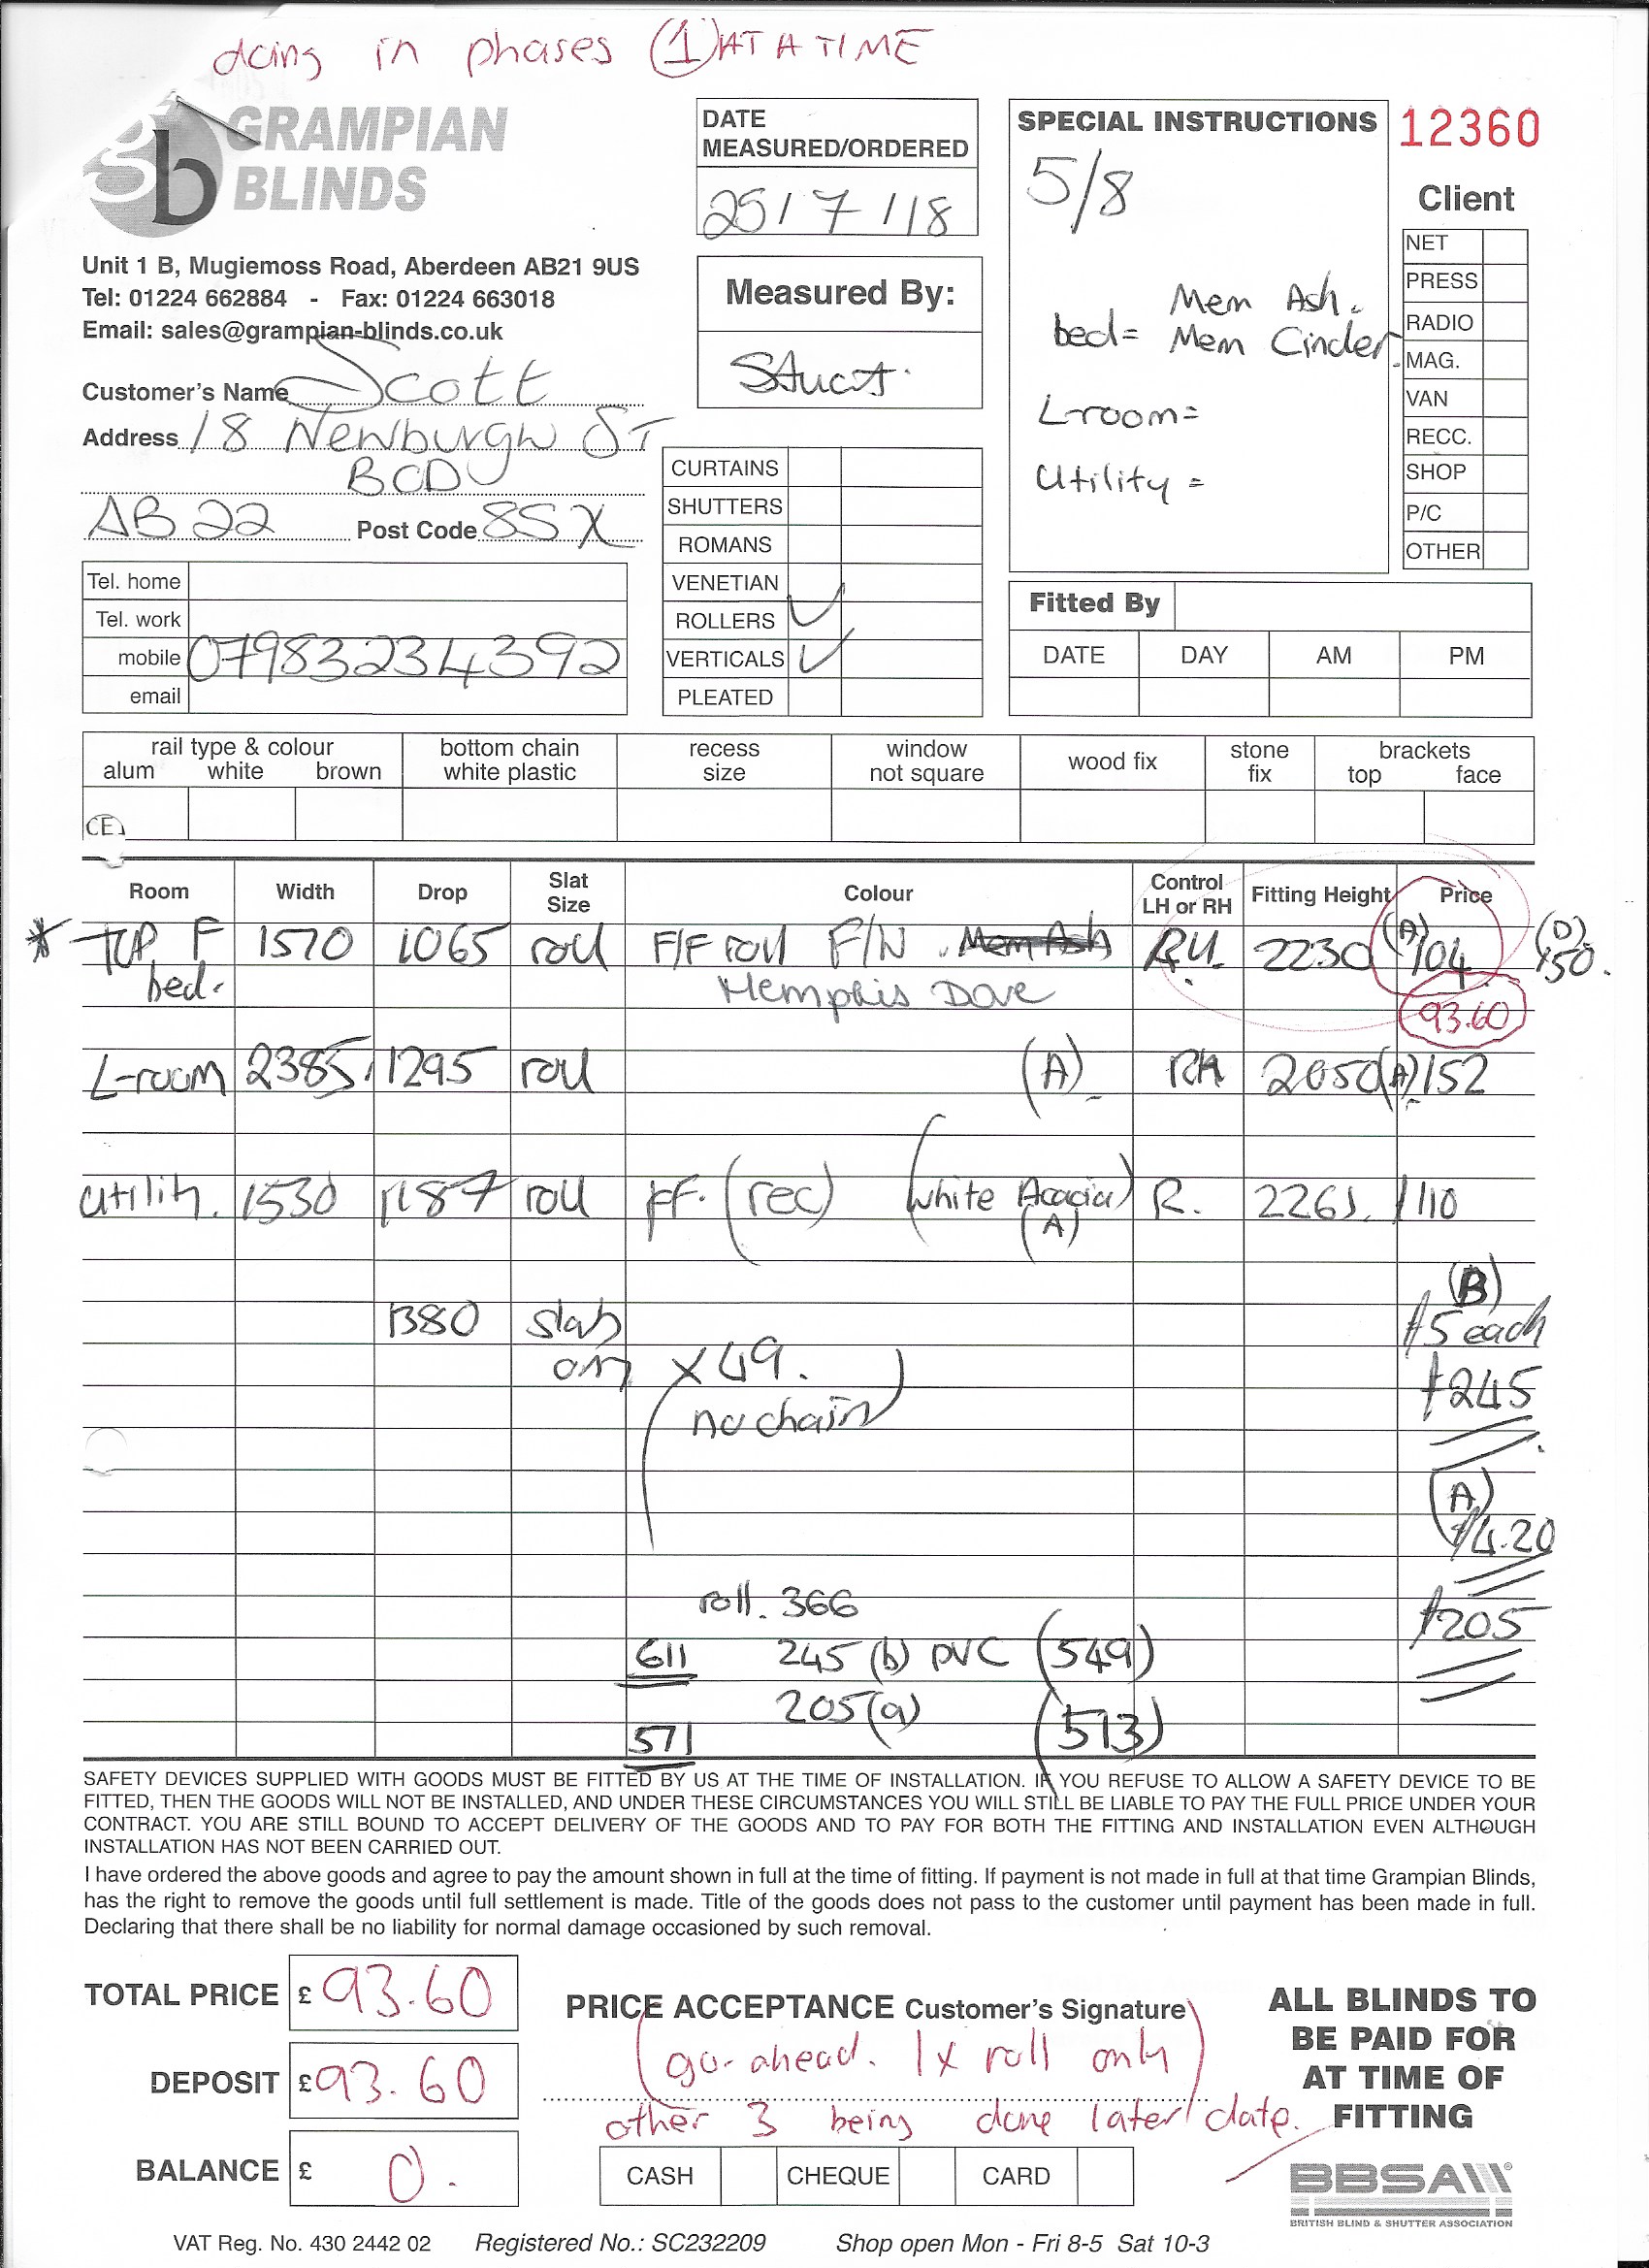 doing in phases (1) AT A TIME
GRAMPIAN
BLINDS
gb
Unit 1 B, Mugiemoss Road, Aberdeen AB21 9US
Tel: 01224 662884 - Fax: 01224 663018
Email: sales@grampian-blinds.co.uk
Customer's Name Scott
Address 18 Newburgh St
BOD
AB22 Post Code 8SX
Tel. home
Tel. work
mobile 07983234392
email
DATE
MEASURED/ORDERED
25/7/18
Measured By:
Stuart.
CURTAINS
SHUTTERS
ROMANS
VENETIAN
ROLLERS ✓
VERTICALS ✓
PLEATED
SPECIAL INSTRUCTIONS
5/8
Mem Ash.
bed= Mem Cinder.
L-room=
Utility =
12360
Client
NET
PRESS
RADIO
MAG.
VAN
RECC.
SHOP
P/C
OTHER
Fitted By
DATE DAY AM PM
rail type & colour bottom chain recess window wood fix stone brackets
alum white brown white plastic size not square fix top face
CE
Room Width Drop Slat Size Colour Control LH or RH Fitting Height Price
* TOP F 1570 1065 roll F/F roll F/N . Mem Ash 2230 (A) 104 (D)
bed. Memphis Dove 150.
93.60
L-room 2385 1295 roll (A) RH 2050 (A) 152
utility. 1530 1187 roll FF. (rec) (white Acacia) R. 2261. 110
(A)
(B)
1380 slats £5 each
only x 49. £245
(no chain)
(A)
£4.20
roll. 366 £205
611 245 (b) PVC (549)
205 (a)
571 (513)
SAFETY DEVICES SUPPLIED WITH GOODS MUST BE FITTED BY US AT THE TIME OF INSTALLATION. IF YOU REFUSE TO ALLOW A SAFETY DEVICE TO BE
FITTED, THEN THE GOODS WILL NOT BE INSTALLED, AND UNDER THESE CIRCUMSTANCES YOU WILL STILL BE LIABLE TO PAY THE FULL PRICE UNDER YOUR
CONTRACT. YOU ARE STILL BOUND TO ACCEPT DELIVERY OF THE GOODS AND TO PAY FOR BOTH THE FITTING AND INSTALLATION EVEN ALTHOUGH
INSTALLATION HAS NOT BEEN CARRIED OUT.
I have ordered the above goods and agree to pay the amount shown in full at the time of fitting. If payment is not made in full at that time Grampian Blinds,
has the right to remove the goods until full settlement is made. Title of the goods does not pass to the customer until payment has been made in full.
Declaring that there shall be no liability for normal damage occasioned by such removal.
TOTAL PRICE £ 93.60
DEPOSIT £ 93.60
BALANCE £ 0.
PRICE ACCEPTANCE Customer's Signature
(go-ahead. 1x roll only)
other 3 being done later date.
CASH CHEQUE CARD
ALL BLINDS TO
BE PAID FOR
AT TIME OF
FITTING
BBSA
BRITISH BLIND & SHUTTER ASSOCIATION
VAT Reg. No. 430 2442 02 Registered No.: SC232209 Shop open Mon - Fri 8-5 Sat 10-3